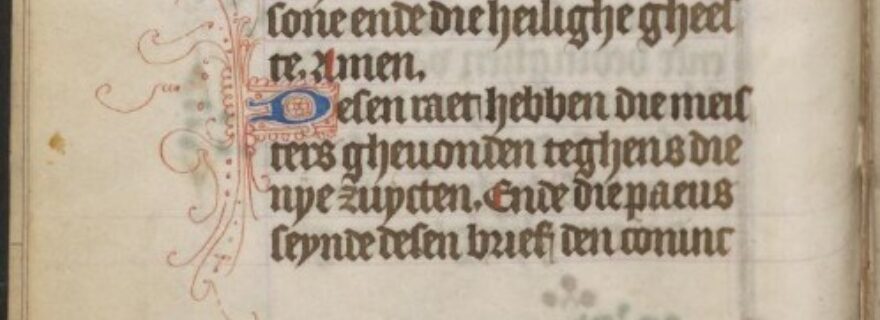 sone ende die heilighe ghees
te. Amen.
Desen raet hebben die meis
ters gheuonden teghens die
nye zuycten. Ende die paeus
seynde desen brief den coninc